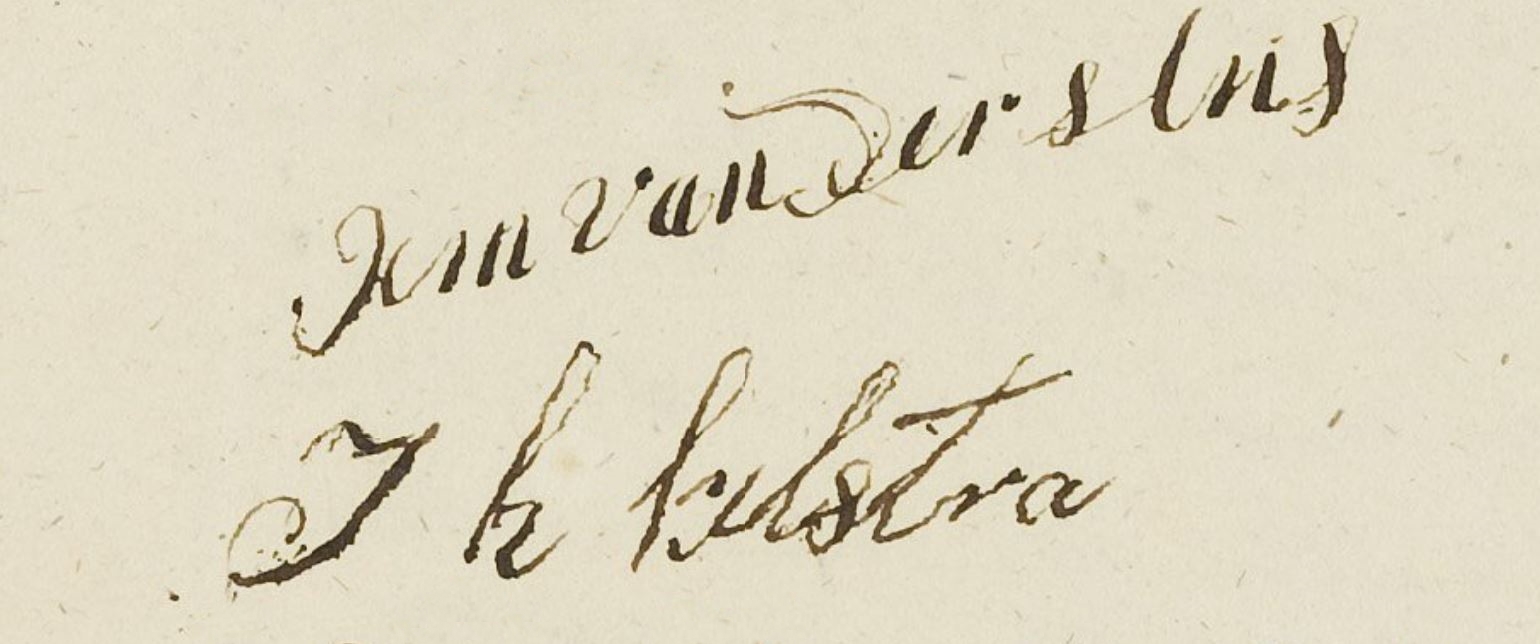 Jem van Der slns
J k kelstra